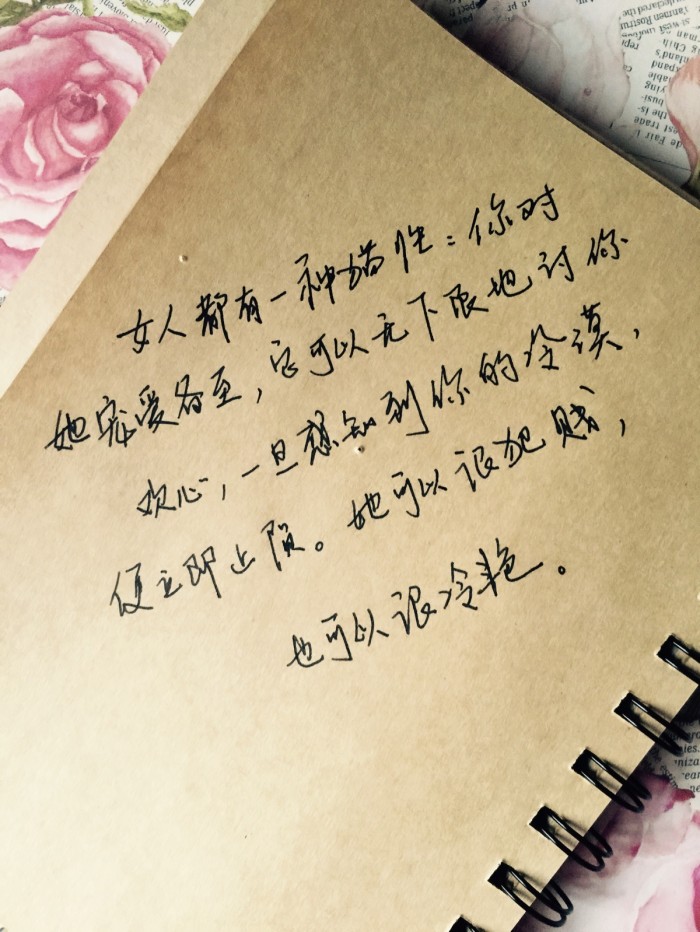 女人都有一种猫性：你对
她宠爱备至，它可以无下限地讨你
欢心，一旦想知到你的冷漠，
便立即止损。她可以很犯贱，
也可以很冷艳。